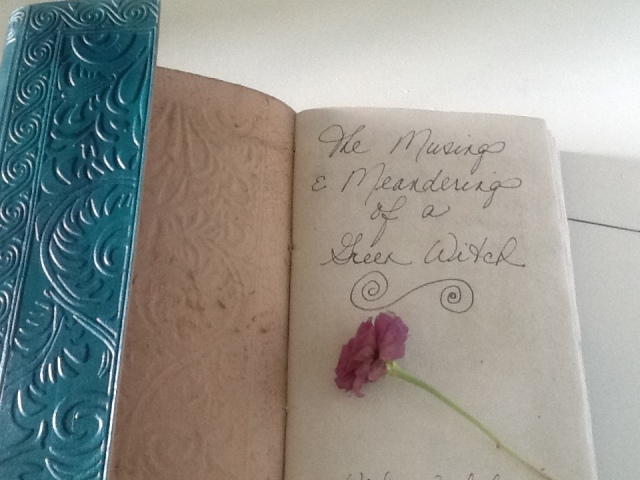 The Musings
& Meanderings
of a
Green Witch